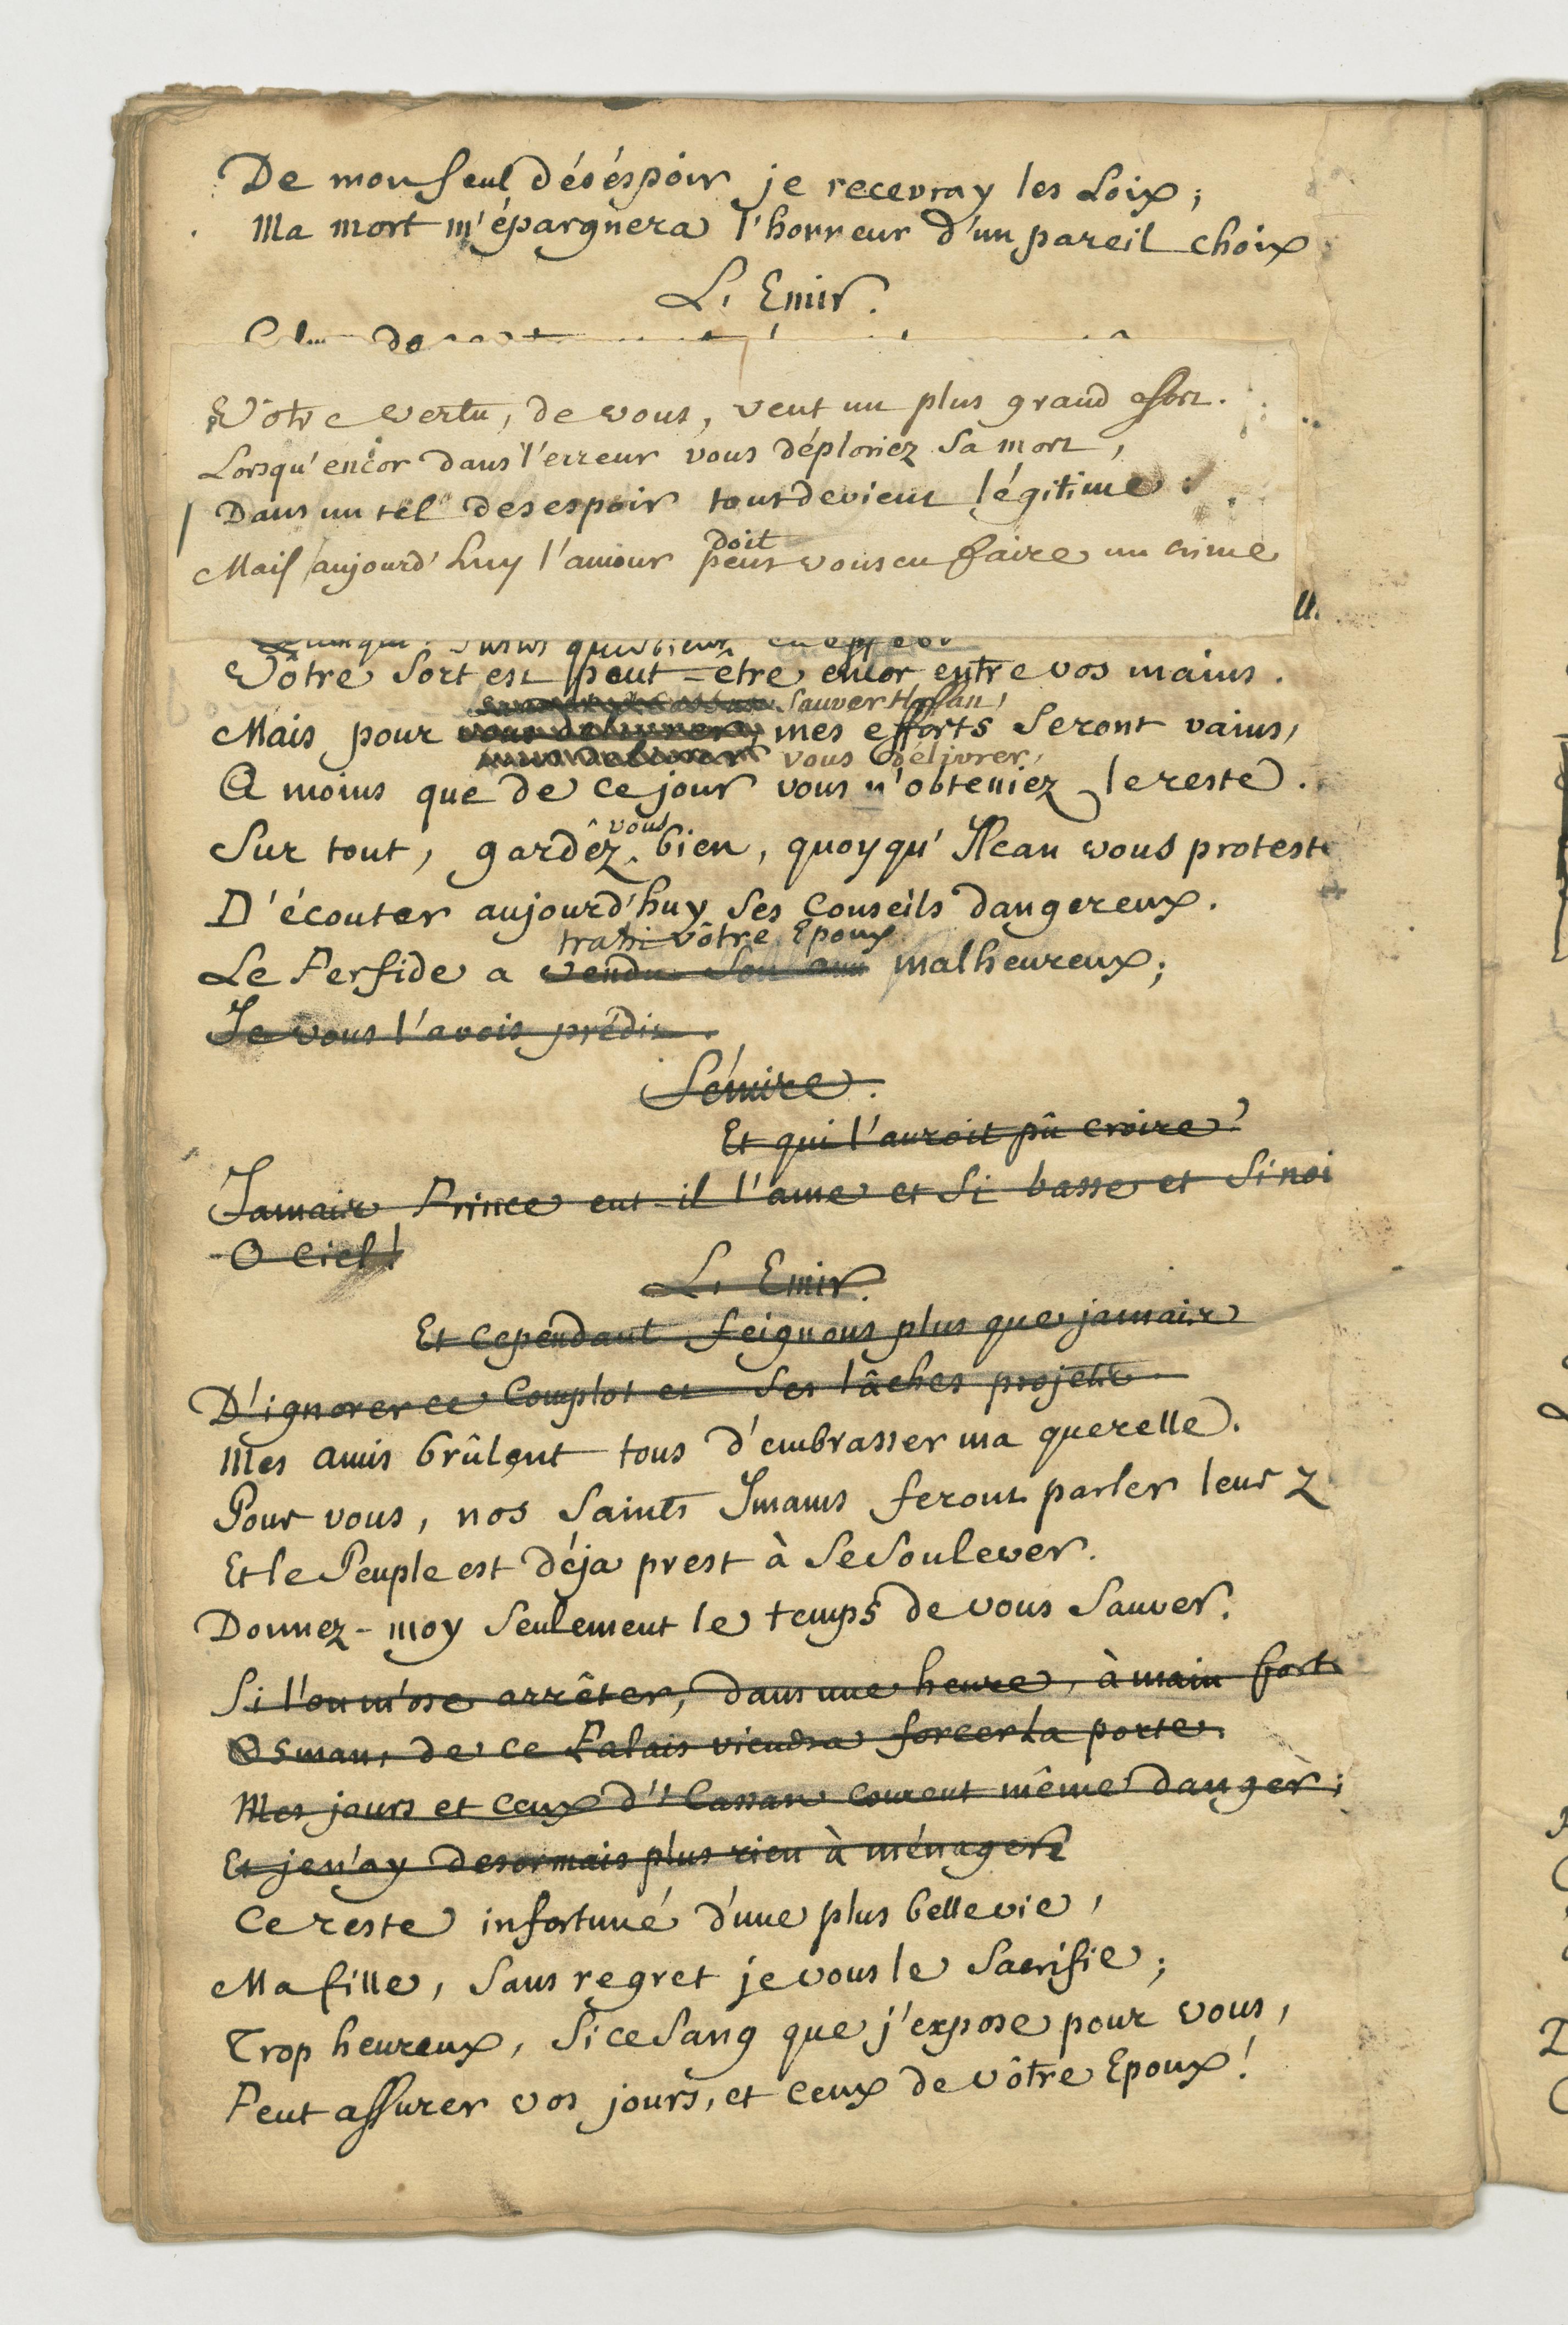 De mon seul désespoir je recevray les Loix;
Ma mort m'épargnera l'horreur d'un pareil choix
L'Emir.
Vôtre vertu, de vous, veut un plus grand effort.
Lorsqu'encor dans l'erreur vous déploriez sa mort,
Dans un tel desespoir tout devient légitime.
doit
Mais aujourd'huy l'amour peut vous en faire un crime
Vôtre sort est peut-être encor entre vos mains.
Sauver Hassan,
Mais pour vous delivrer, mes efforts seront vains,
vous délivrer,
A moins que de ce jour vous n'obteniez le reste.
vous
Sur tout, gardez bien, quoyqu'Ilcan vous proteste
D'écouter aujourd'huy ses conseils dangereux.
trahi vôtre Epoux
Le Perfide a vendu son ami malheureux;
Je vous l'avois prédit.
Sémire.
Et qui l'auroit pû croire?
Jamais Prince eut-il l'ame et si basse et si noi
O Ciel!
L'Emir.
Et cependant feignons plus que jamais
D'ignorer ce Complot et ses lâches projets.
Mes amis brûlent tous d'embrasser ma querelle.
Pour vous, nos saints Imams feront parler leur z
Et le Peuple est déja prest à se soulever.
Donnez-moy seulement le temps de vous sauver.
Si l'on m'ose arrêter, dans une heure, à main forte
Osman, de ce Palais viendra forcer la porte.
Mes jours et ceux d'Hassan courent même danger;
Et je n'ay desormais plus rien à ménager
Ce reste infortuné d'une plus belle vie,
Ma fille, sans regret je vous le sacrifie;
Trop heureux, si ce sang que j'expose pour vous,
Peut assurer vos jours, et ceux de vôtre Epoux!